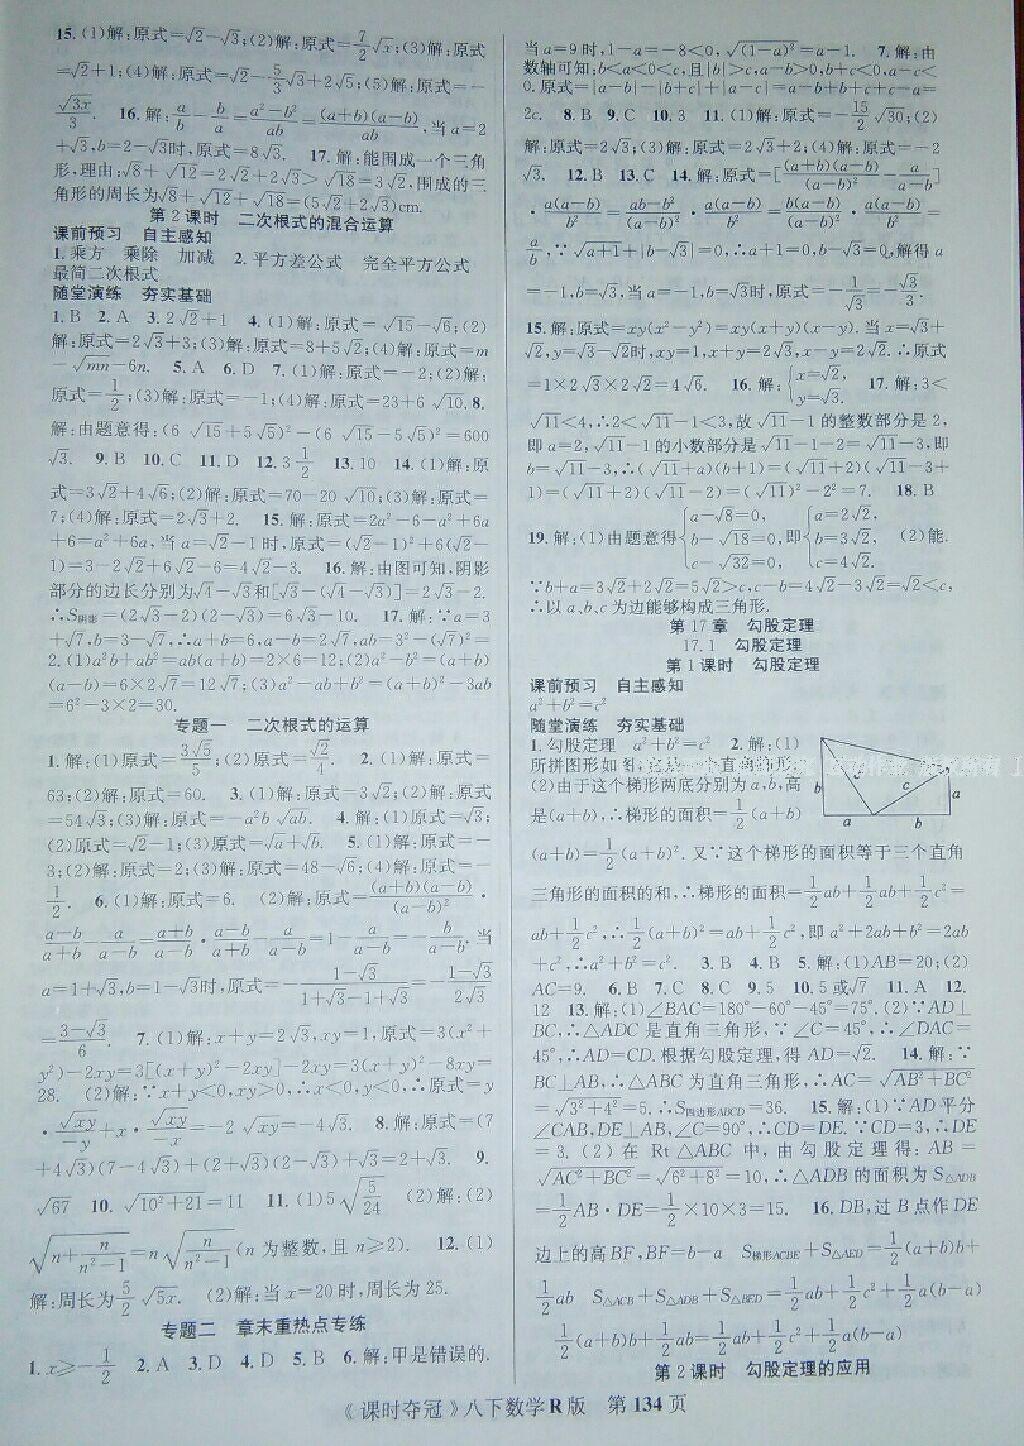 15. (1)解:原式=√2-√3;(2)解:原式=7/2√x;(3)解:原式
=√2+1;(4)解:原式=√2-5/3√3+2√5;(5)解:原式=-
√3x/3. 16. 解:a/b-b/a=(a²-b²)/ab=(a+b)(a-b)/ab,当a=2
+√3,b=2-√3时,原式=8√3. 17. 解:能围成一个三角
形,理由:√8+√12=2√2+2√3>√18=3√2.围成的三
角形的周长为√8+√12+√18=(5√2+2√3)cm.
第2课时 二次根式的混合运算
课前预习 自主感知
1. 乘方 乘除 加减 2. 平方差公式 完全平方公式
最简二次根式
随堂演练 夯实基础
1. B 2. A 3. 2√2+1 4. (1)解:原式=√15-√6;(2)
解:原式=2√3+3;(3)解:原式=8+5√2;(4)解:原式=m
-√mn-6n. 5. A 6. D 7. (1)解:原式=-2;(2)解:
原式=1/2;(3)解:原式=-1;(4)解:原式=23+6√10. 8.
解:由题意得:(6√15+5√5)²-(6√15-5√5)²=600
√3. 9. B 10. C 11. D 12. 3 1/2 13. 10 14. (1)解:原
式=3√2+4√6;(2)解:原式=70-20√10;(3)解:原式=
7;(4)解:原式=2√3+2. 15. 解:原式=2a²-6-a²+6a
+6=a²+6a,当a=√2-1时,原式=(√2-1)²+6(√2-
1)=3-2√2+6√2-6=4√2-3. 16. 解:由图可知,阴影
部分的边长分别为√4-√3和[√3-(√4-√3)]=2√3-2.
∴S阴影=(2√3-2)(2-√3)=6√3-10. 17. 解:∵a=3
+√7,b=3-√7,∴a+b=6,a-b=2√7,ab=3²-(√7)²=
2. (1)a²b+ab²=ab(a+b)=2×6=12;(2)a²-b²=(a+b)
(a-b)=6×2√7=12√7;(3)a²-ab+b²=(a+b)²-3ab
=6²-3×2=30.
专题一 二次根式的运算
1. 解:(1)原式=3√5/5;(2)原式=√2/4. 2. (1)解:原式=
63;(2)解:原式=60. 3. (1)解:原式=3√2;(2)解:原式
=54√3;(3)解:原式=-a²b√ab. 4. 解:(1)原式=√3;
(2)原式=√2-1;(3)原式=√a+√b. 5. (1)解:原式=-
3;(2)解:原式=2;(3)解:原式=48-√6;(4)解:原式=-
1/2. 6. (1)解:原式=6. (2)解:原式=(a+b)(a-b)/(a-b)²·
(a-b)/(a+b)-a/(a-b)=(a+b)/(a-b)·(a-b)/(a+b)-a/(a-b)=1-a/(a-b)=-b/(a-b).当
a=1+√3,b=1-√3时,原式=-(1-√3)/(1+√3-1+√3)=-(1-√3)/2√3
=(3-√3)/6. 7. (1)解:x+y=2√3,xy=1,原式=3(x²+
y²)-2xy=3[(x+y)²-2xy]-2xy=3(x+y)²-8xy=
28. (2)解:∵x+y<0,xy>0,∴x<0,y<0,∴原式=y
·√xy/-y+x·√xy/-x=-2√xy=-4√3. 8. 解:原式=(7
+4√3)(7-4√3)+(2+√3)(2-√3)+√3=2+√3. 9.
√67 10. √(10²+21)=11 11. (1)5√(5/24) (2)解:(2)
√(n+n/(n²-1))=n√(n/(n²-1))(n为整数,且n≥2). 12. (1)
解:周长为5/2√5x. (2)解:当x=20时,周长为25.
专题二 章末重热点专练
1. x≥-1/2 2. A 3. D 4. D 5. B 6. 解:甲是错误的.
当a=9时,1-a=-8<0,√(1-a)²=a-1. 7. 解:由
数轴可知:b<a<0<c,且|b|>c,a-b>0,b+c<0,a-c<
0.原式=|a-b|-|b+c|+|a-c|=a-b+b+c+c-a=
2c. 8. B 9. C 10. 3 11. (1)解:原式=-15/2√30;(2)
解:原式=2√3;(3)解:原式=2√3+2;(4)解:原式=-2
√3. 12. B 13. C 14. 解:原式=[(a+b)(a-b)/(a-b)²-a/(a-b)]
·a(a-b)/b²=(ab-b²)/(a-b)²·a(a-b)/b²=b(a-b)/(a-b)²·a(a-b)/b²=
a/b,∵√(a+1)+|b-√3|=0,∴a+1=0,b-√3=0,解得a
=-1,b=√3,当a=-1,b=√3时,原式=-1/√3=-√3/3.
15. 解:原式=xy(x²-y²)=xy(x+y)(x-y).当x=√3+
√2,y=√3-√2时,xy=1,x+y=2√3,x-y=2√2.∴原式
=1×2√3×2√2=4√6. 16. 解:{x=√2, y=√3. 17. 解:3<
√11<4,∴2<√11-1<3,故√11-1的整数部分是2,
即a=2,√11-1的小数部分是√11-1-2=√11-3,即
b=√11-3,∴(√11+a)(b+1)=(√11+2)(√11-3+
1)=(√11+2)(√11-2)=(√11)²-2²=7. 18. B
19. 解:(1)由题意得{a-√8=0, b-√18=0, c-√32=0,即{a=2√2, b=3√2, c=4√2. (2)能.
∵b+a=3√2+2√2=5√2>c,c-b=4√2-3√2=√2<c,
∴以a,b,c为边能够构成三角形.
第17章 勾股定理
17.1 勾股定理
第1课时 勾股定理
课前预习 自主感知
a²+b²=c²
随堂演练 夯实基础
1. 勾股定理 a²+b²=c² 2. 解:(1)
所拼图形如图,它是一个直角梯形;
(2)由于这个梯形两底分别为a,b,高
是(a+b),∴梯形的面积=1/2(a+b)
b c c a
a b
(a+b)=1/2(a+b)².又∵这个梯形的面积等于三个直角
三角形的面积的和,∴梯形的面积=1/2ab+1/2ab+1/2c²=
ab+1/2c²,∴1/2(a+b)²=ab+1/2c²,即a²+2ab+b²=2ab
+c²,∴a²+b²=c². 3. B 4. B 5. 解:(1)AB=20;(2)
AC=9. 6. B 7. C 8. C 9. 5 10. 5或√7 11. A 12.
12 13. 解:(1)∠BAC=180°-60°-45°=75°. (2)∵AD⊥
BC,∴△ADC是直角三角形,∵∠C=45°,∴∠DAC=
45°,∴AD=CD.根据勾股定理,得AD=√2. 14. 解:∵
BC⊥AB,∴△ABC为直角三角形,∴AC=√(AB²+BC²)
=√(3²+4²)=5.∴S四边形ABCD=36. 15. 解:(1)∵AD平分
∠CAB,DE⊥AB,∠C=90°,∴CD=DE.∵CD=3,∴DE
=3. (2)在Rt△ABC中,由勾股定理得:AB=
√(AC²+BC²)=√(6²+8²)=10,∴△ADB的面积为S△ADB
=1/2AB·DE=1/2×10×3=15. 16. DB,过B点作DE
边上的高BF,BF=b-a S梯形ACBE+S△AED=1/2(a+b)b+
1/2ab S△ACB+S△ADB+S△BED=1/2ab+1/2c²+1/2a(b-a)
1/2(a+b)b+1/2ab=1/2ab+1/2c²+1/2a(b-a)
第2课时 勾股定理的应用
《课时夺冠》八下数学R版 第134页